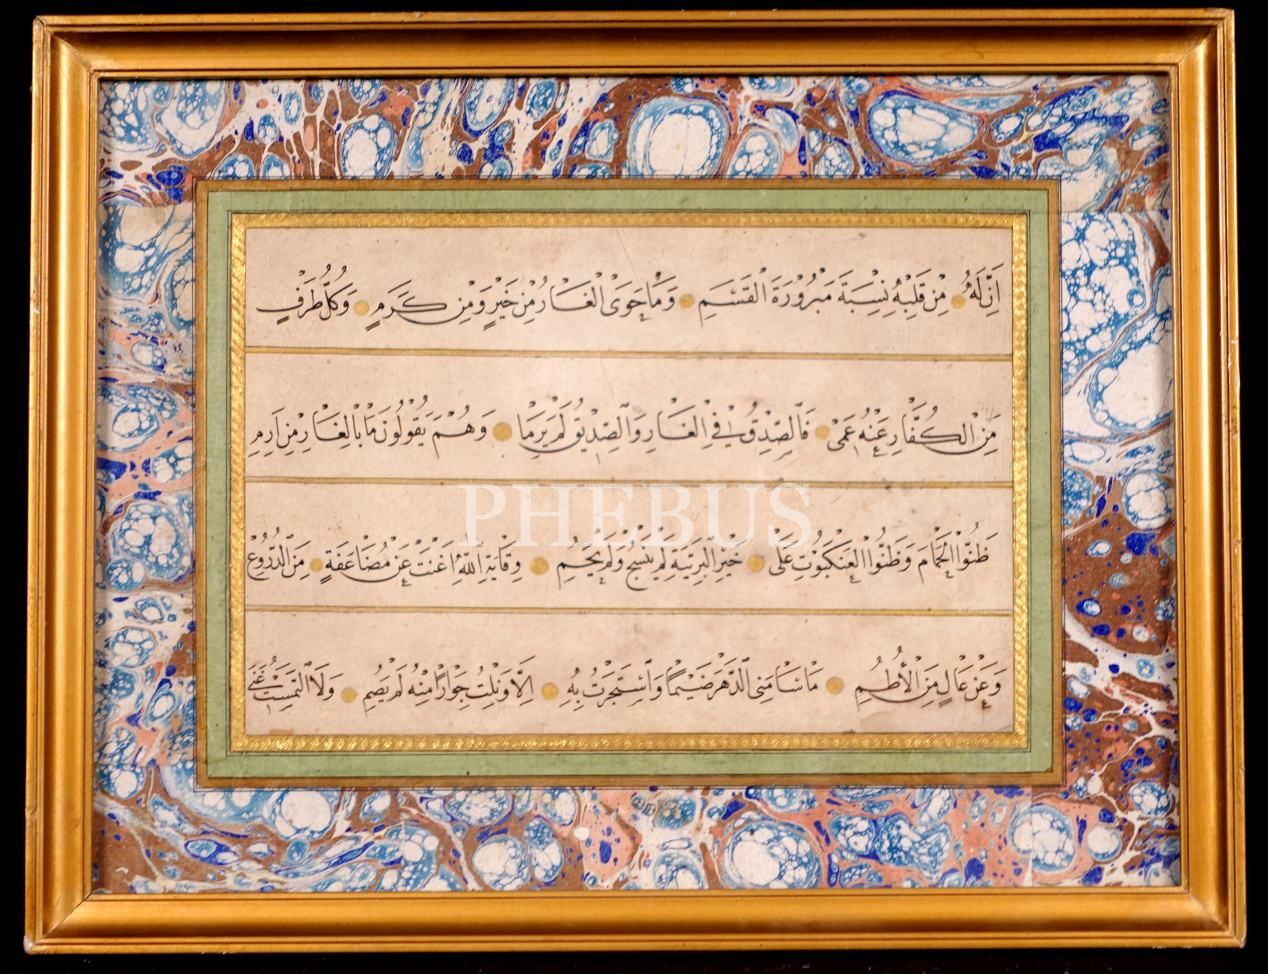 اَنَّ لَهُ مِنْ قَلْبِهِ نِسْبَةً مَبْرُورَةَ الْقَسَمِ وَمَا حَوَى الْغَارُ مِنْ خَيْرٍ وَمِنْ كَرَمٍ وَكُلُّ طَرْفٍ
مِنَ الْكُفَّارِ عَنْهُ عَمِى فَالصِّدْقُ فِى الْغَارِ وَالصِّدِّيقُ لَمْ يَرِمَا وَهُمْ يَقُولُونَ مَا بِالْغَارِ مِنْ اَرِمِ
ظَنُّوا الْحَمَامَ وَظَنُّوا الْعَنْكَبُوتَ عَلَى خَيْرِ الْبَرِيَّةِ لَمْ تَنْسُجْ وَلَمْ تَحُمِ وِقَايَةُ اللّٰهِ اَغْنَتْ عَنْ مُضَاعَفَةٍ مِنَ الدُّرُوعِ
وَعَنْ عَالٍ مِنَ الْأُطُمِ مَا سَامَنِى الدَّهْرُ ضَيْمًا وَاسْتَجَرْتُ بِهِ اِلَّا وَنِلْتُ جِوَارًا مِنْهُ لَمْ يُضَمِ وَلَا الْتَمَسْتُ غِنَى
PHEBUS